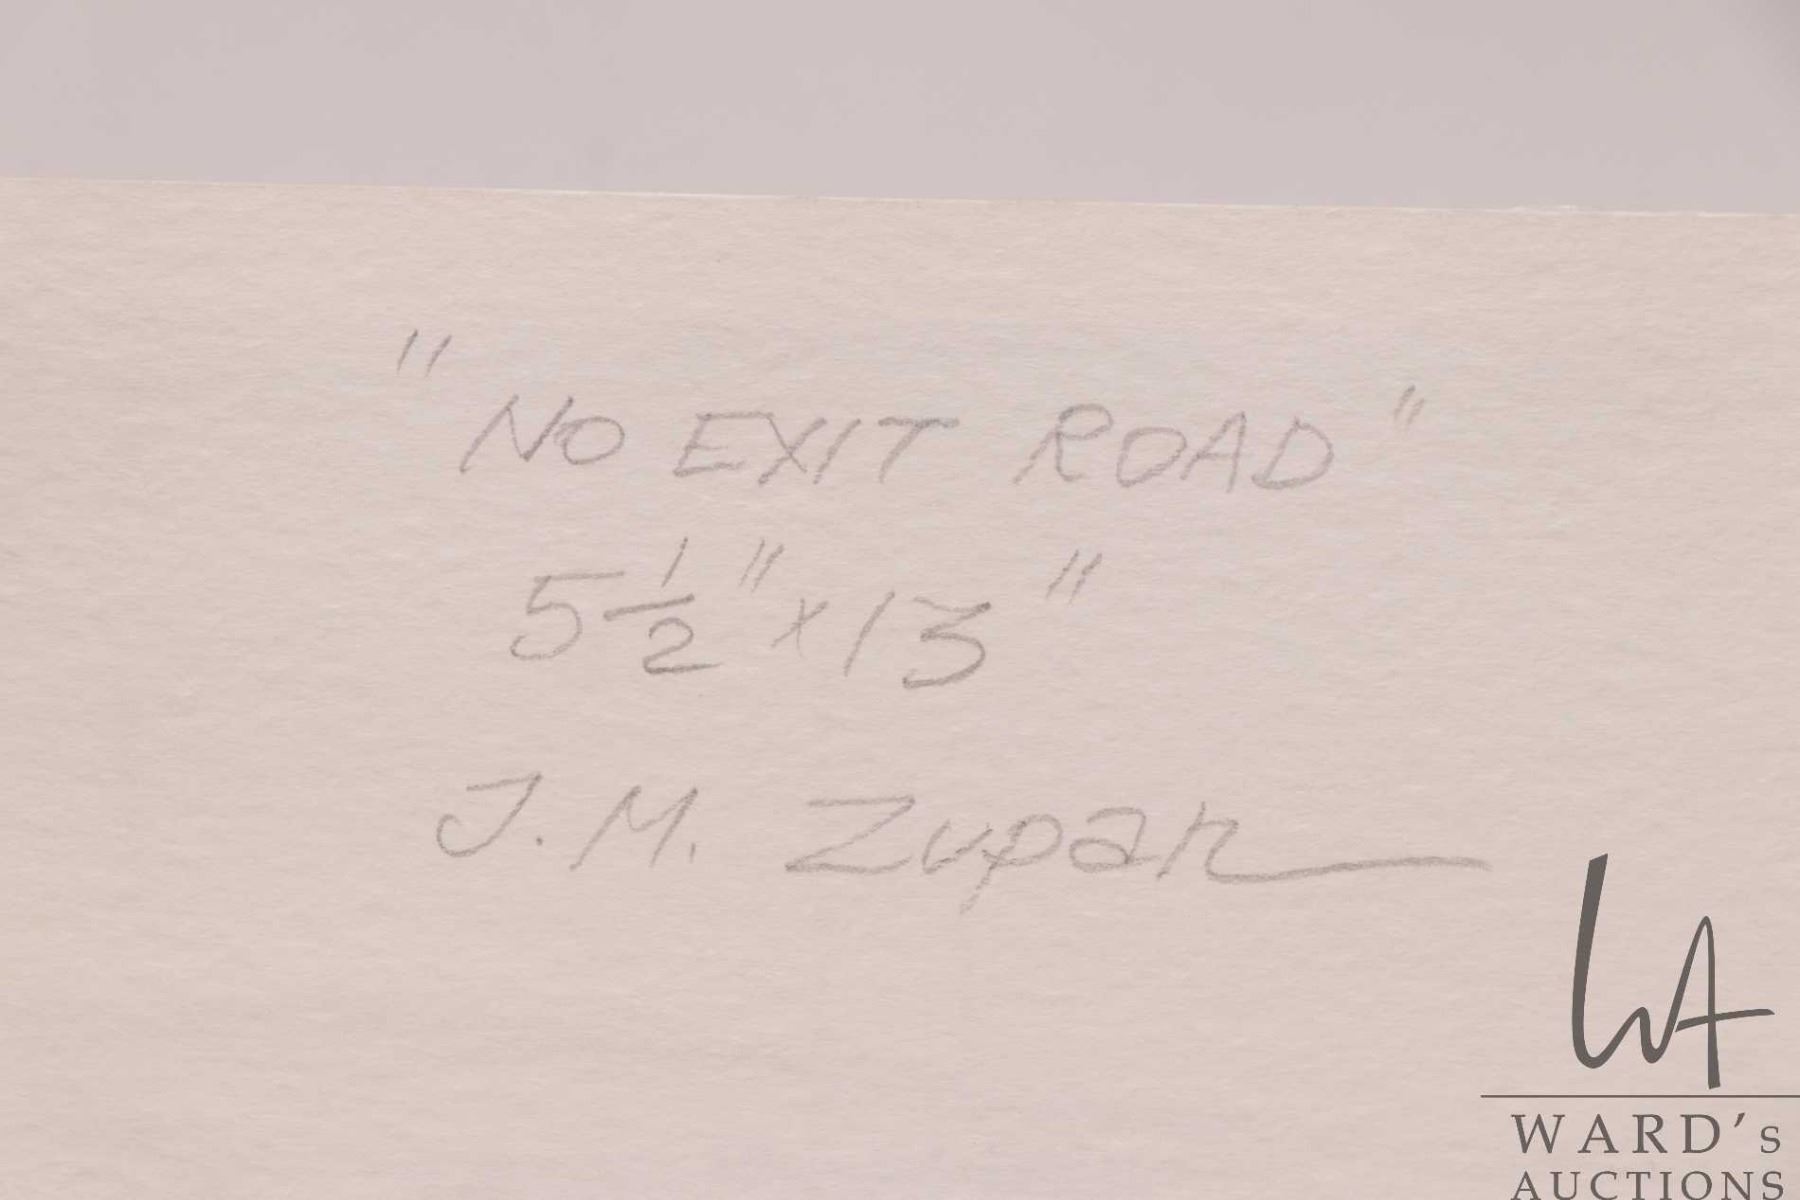 "NO EXIT ROAD"
5 1/2" x 13"
J. M. Zupan
WA
WARD's
AUCTIONS